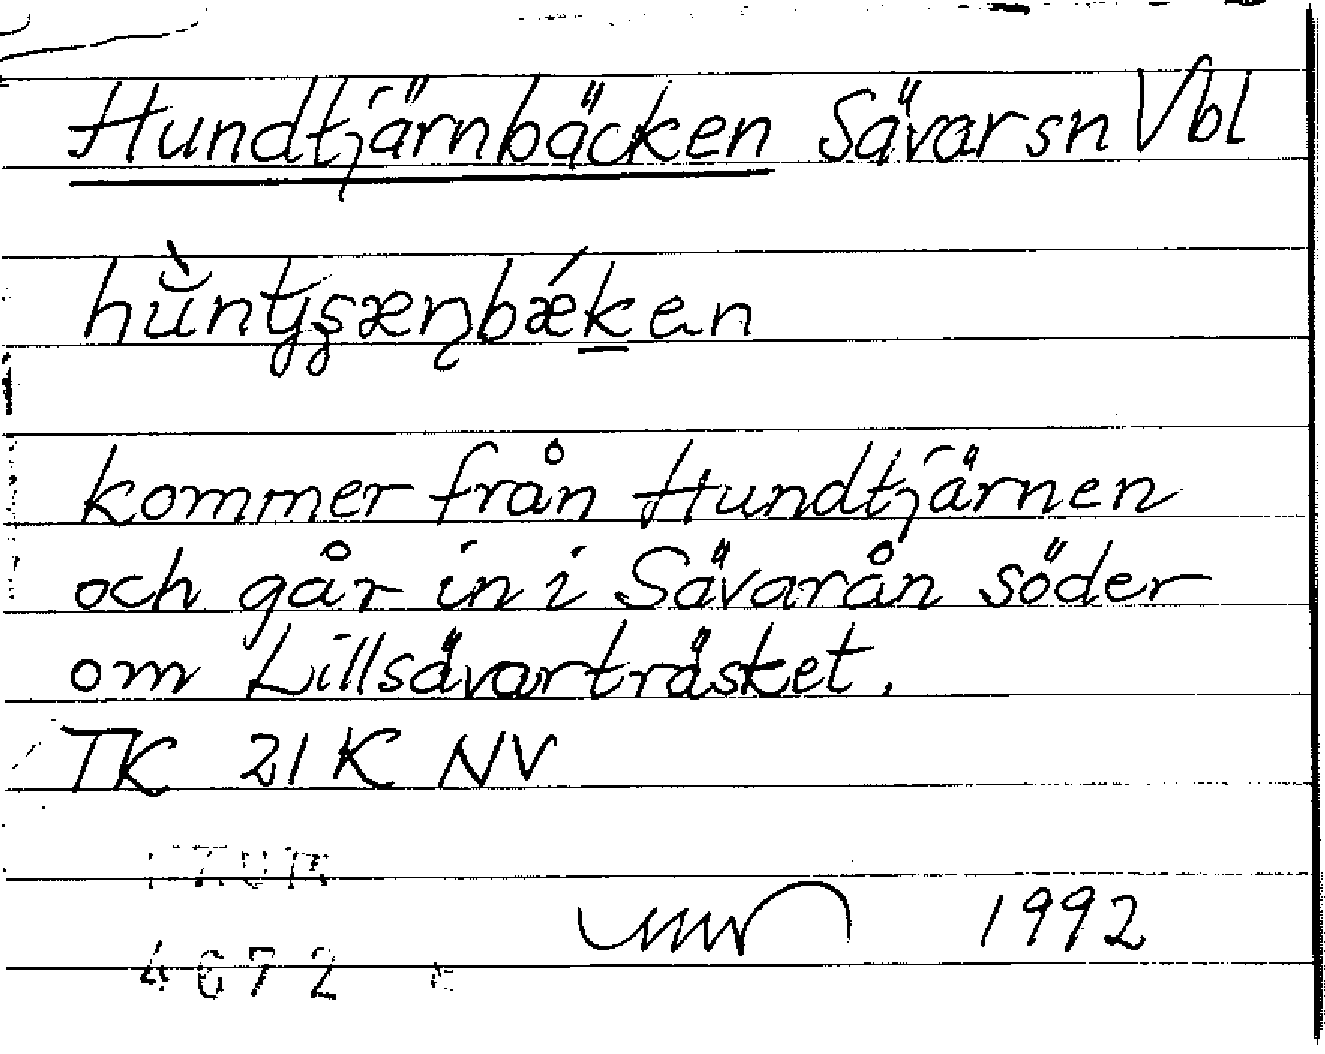 Hundtjärnbäcken Sävar sn Vbl
kommer från Hundtjärnen
och går in i Sävarån söder
om Lillsävarträsket.
TK 21 K NV
1992
4672